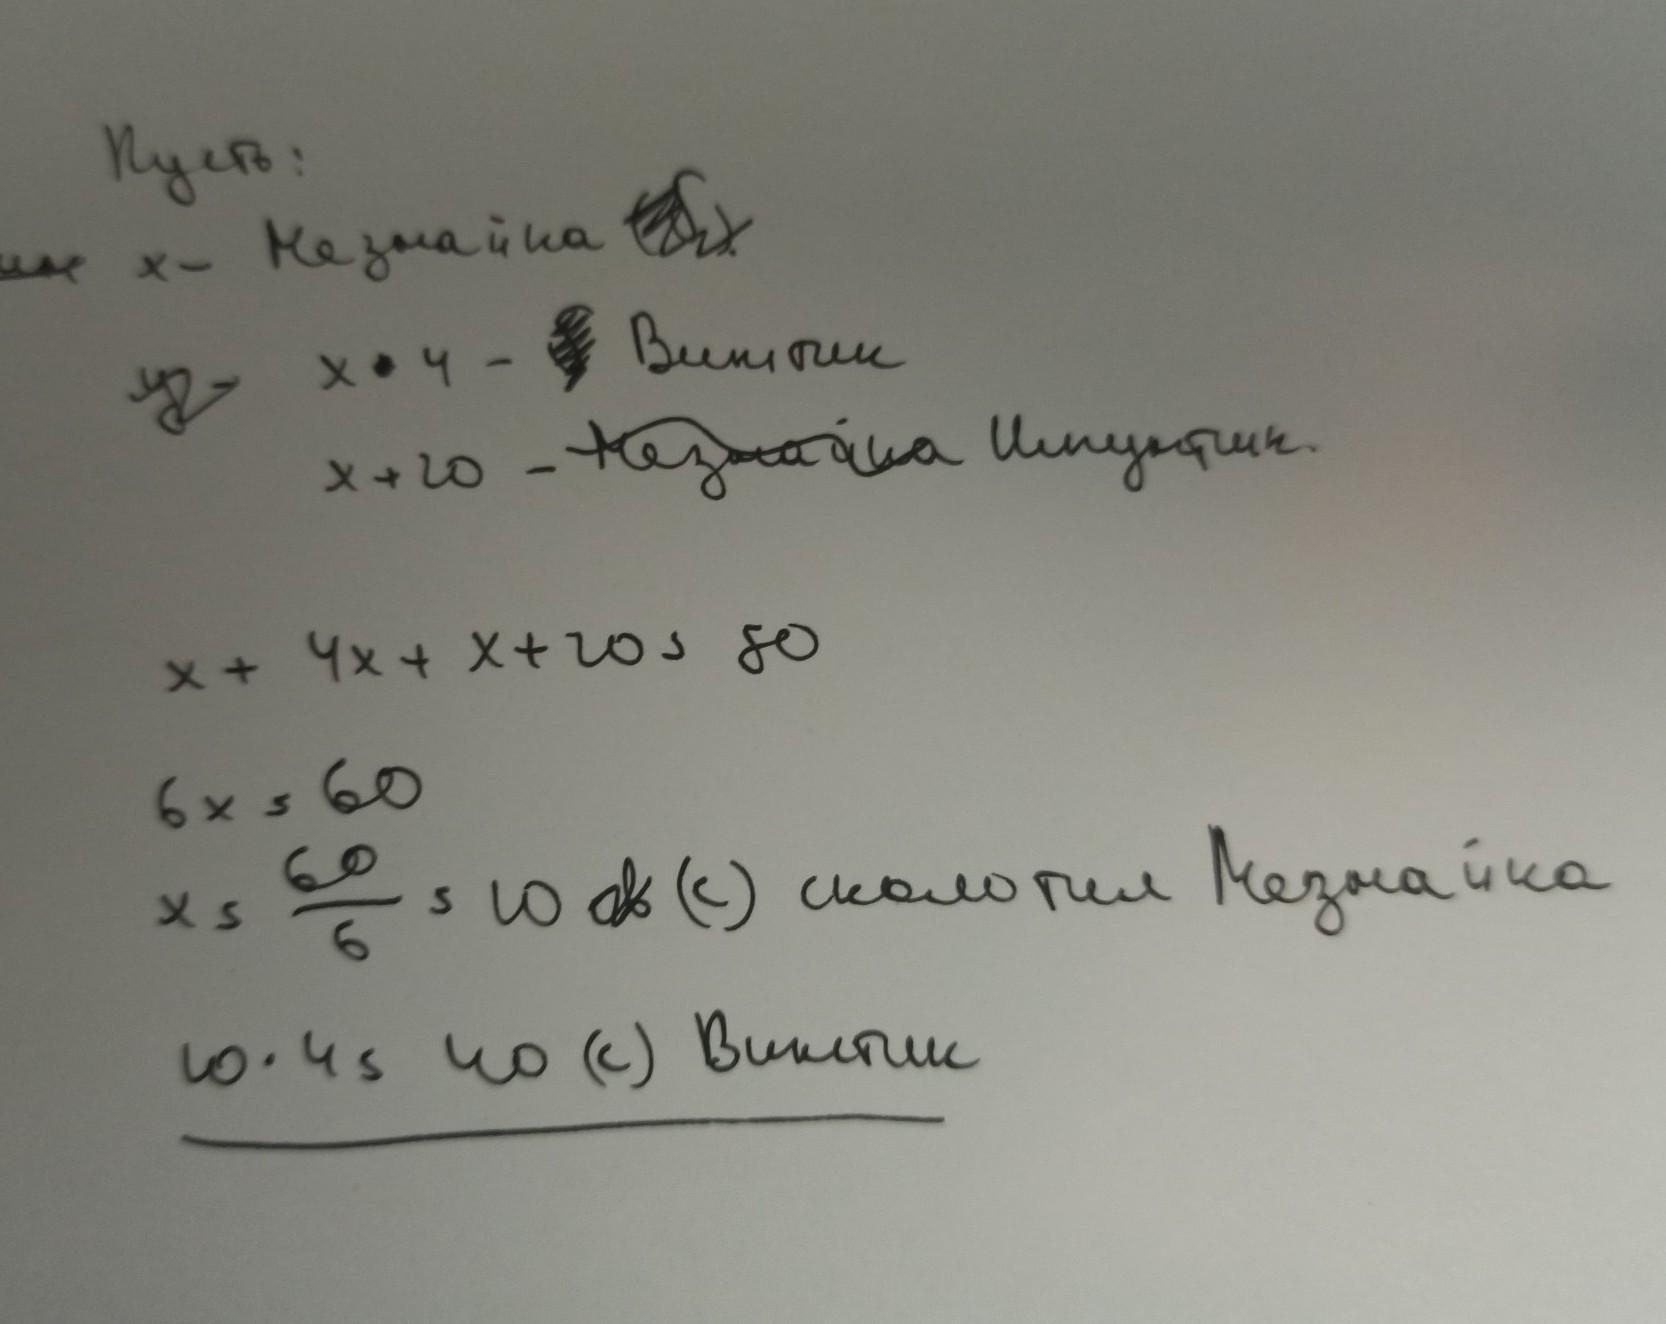 Пусть:
x - Незнайка
x • 4 - Винтик
x + 20 - Незнайка Шпунтик.
x + 4x + x + 20 = 80
6x = 60
x = 60/6 = 10 (с) сколотил Незнайка
10 · 4 = 40 (с) Винтик